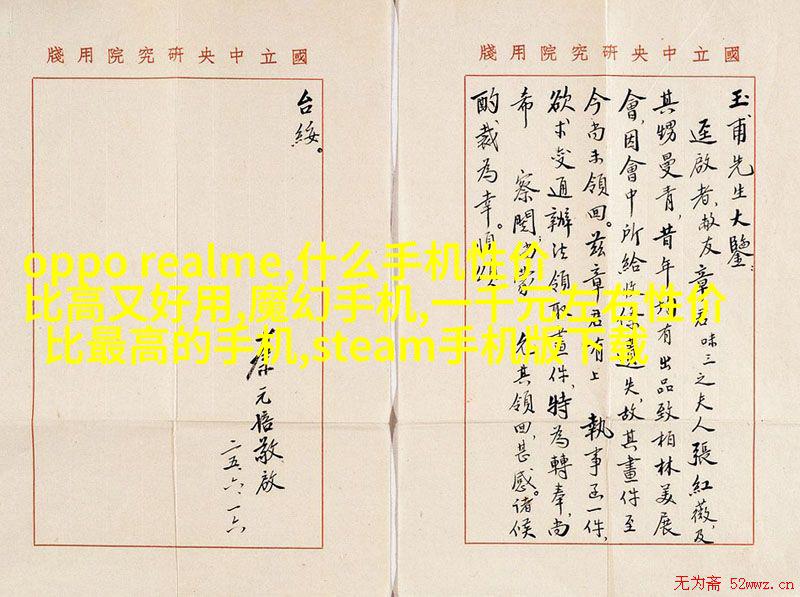 國立中央研究院用牋
玉甫先生大鑒:
逕啟者,敝友章君味三之夫人張紅薇,及
其甥曼青,昔年均有出品致柏林美展
會,因會中所給收條遺失,故其畫件至
今尚未領回。茲章君有上 執事函一件,
欲求變通辦法領取畫件,特為轉奉,尚
希 察閱 允其領回,甚感。諸候
酌裁為幸。順頌
國立中央研究院用牋
台綏。
蔡元培敬啟
二五、六、一六
oppo realme,什么手机性价
比高又好用,魔幻手机,一千元左右性价
比最高的手机,steam手机版下载
无为斋 52wwz.cn